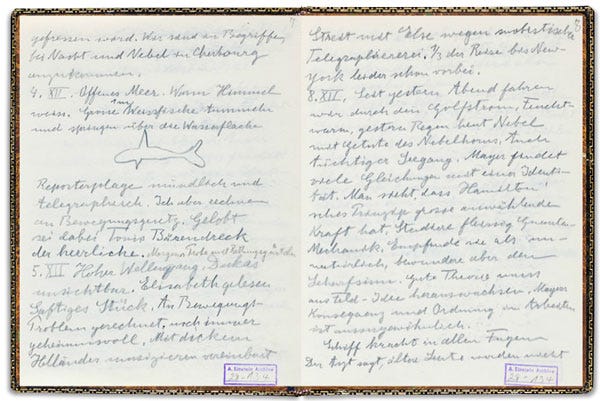 gefressen ward. Wir sind im Begriffe,
bei Nacht und Nebel in Cherbourg
anzukommen.
4. XII. Offenes Meer. Warm Himmel
weiss. Grosse Weissfische tummeln
und springen über die Wasserfläche
Reporterplage mündlich und
telegraphisch. Ich aber rechnen
an Bewegungsgesetz. Gelobt
sei dabei Tonis Bärendreck
der herrliche. Morgen
5. XII Hoher Wellengang, Dukas
unsichtbar. Elisabeth gelesen
Saftiges Stück. An Bewegungs-
Problem gerechnet, noch immer
geheimnisvoll. Mit dickem
Holländer musizieren vereinbart
A. Einstein Archive
29-134
Streit mit Else wegen snobistischer
Telegraphiererei. 1/3 der Reise bis New-
york leider schon vorbei.
8. XII. Seit gestern Abend fahren
wir durch den Golfstrom, feucht-
warm, gestern Regen heut Nebel
mit Getute des Nebelhorns, Auch
tüchtiger Seegang. Mayer findet
viele Gleichungen mit einer Identi-
tät. Man sieht, dass Hamilton'
sches Prinzip grosse auswählende
Kraft hat. Studiere fleissig Quanten-
Mechanik. Empfinde sie als un-
natürlich, bewundere aber den
Scharfsinn. Gute Theorie muss
aus Feld-Idee herauswachsen. Mayers
Konsequenz und Ordnung im Arbeiten
ist aussergewöhnlich.
Schiff kracht in allen Fugen
Der Arzt sagt, ältere Leute werden nicht
A. Einstein Archive
29-134